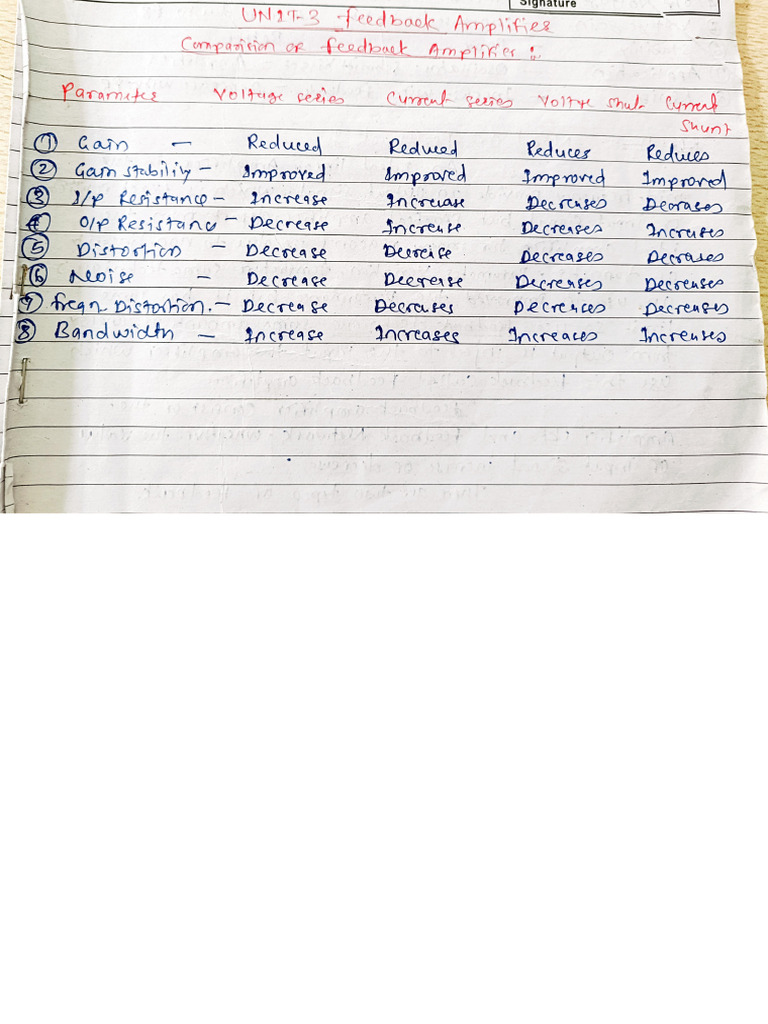 Signature
UNIT-3 Feedback Amplifier
Comparision of Feedback Amplifier :
Parameter Voltage series Current series Voltge Shut Current Shunt
① Gain — Reduced Reduced Reduces Reduces
② Gain stability — Improved Improved Improved Improved
③ I/p Resistance — Increase Increase Decreases Decrases
④ O/p Resistanc — Decrease Increase Decreases Increases
⑤ Distortion — Decrease Decreise Decreases Decrases
⑥ Neoise — Decrease Decrease Decreases Decreases
⑦ freqn Distortion. — Decrease Decreases Decreases Decreases
⑧ Bandwidth — Increase Increases Increaces Increases